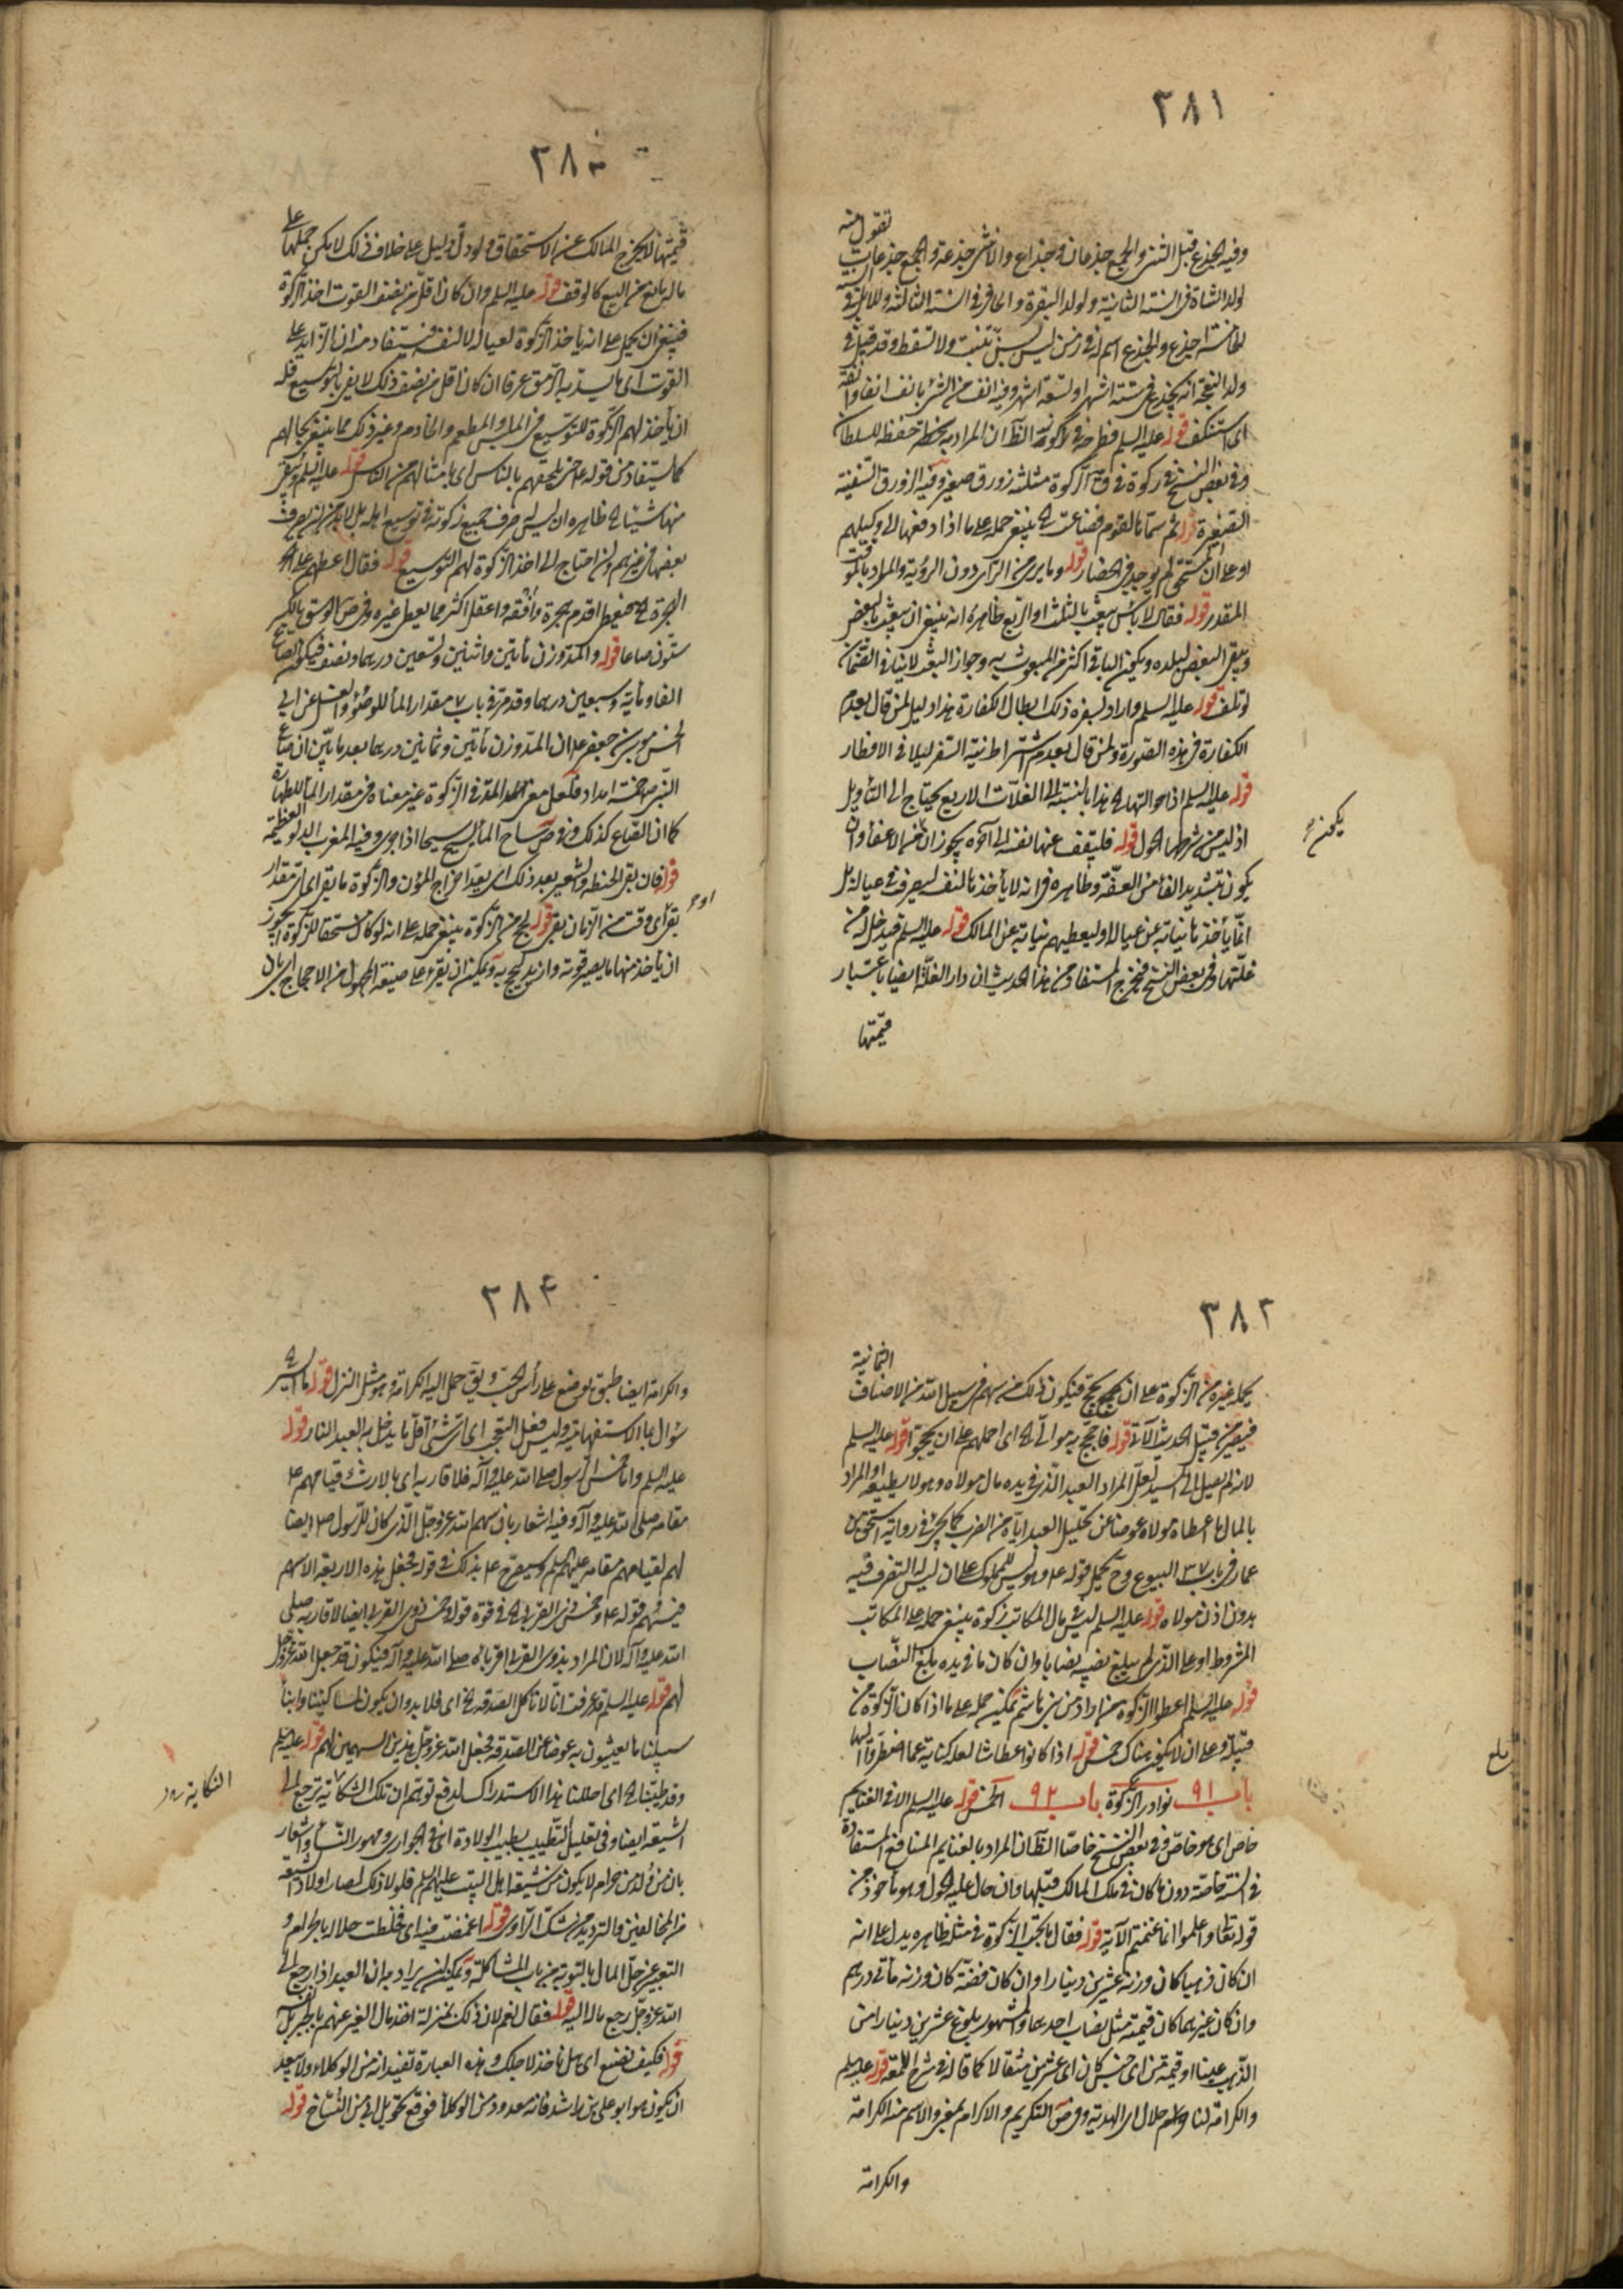 ٣٨١
وفيه الجذع قبل الثنى والجمع جذعان وجذاع والانثى جذعة والجمع جذعات
تقول منه
لولد الشاة فى السنة الثانية ولولد البقرة والحافر فى السنة الثالثة وللابل فى
الخامسة اجذع والجذع اسم له فى زمن ليس بسن تنبت ولا تسقط وقد قيل فى
ولد النعجة انه يجذع فى ستة اشهر او تسعة اشهر وفيه انف من الشئ يانف انفا وانفة
اى استنكف قوله عليه السلم
وفى بعض النسخ فى ركوة فى ق الركوة مثلثة زورق صغير وفيه الزورق السفينة
الصغيرة قوله ثم سماها لقوم فضاعت ينبغى حمله على ما اذا دفعها الى وكيلهم
او على ان المستحق لم يوجد فى الحضار قوله وما يرى من الرأى دون الروية والمراد بالموقت
المقدر قوله فقال لا باس يبعث بالثلث او الربع ظاهره انه ينبغى ان يبعث بالبعض
ويبقى البعض لبلده ويكون الباقى اكثر من المبعوث به وجواز البعث لا ينافى الضمان
لو تلف قوله عليه السلم واراد بسفره ذلك ابطال الكفارة هذا دليل لمن قال بعدم
الكفارة فى هذه الصورة ولمن قال بعدم اشتراط نية السفر ليلا فى الافطار
قوله عليه السلم اذا حوالتها هذا بالنسبة الى الغلات الاربع يحتاج الى التأويل
اذ ليس من شرطها الحول قوله فليعف عنها نفسه الى آخره يجوز ان
يكون
يكون بتشديد الفاء من العفة وظاهره فى انه لا ياخذها لنفسه ليصرف فى عياله بل
انما ياخذها نيابة عن عياله او ليعطيهم نيابة عن المالك قوله عليه السلم فيدخل له من
غلتها وفى بعض النسخ فيخرج المستفاد من هذا الحديث ان دار الغلة ايضا باعتبار
قيمتها
٣٨٠
قيمتها لا يخرج المالك عن الاستحقاق ولو دل دليل على خلاف ذلك لامكن حملها على
ماله مانع من البيع كالوقف قوله عليه السلم وان كان اقل من نصف القوت اخذ الزكوة
فينبغى ان يحمل على انه ياخذ الزكوة لعياله لا لنفسه ويستفاد منه ان الزايد على
القوت اى ما يسد به الرمق عرفا ان كان اقل من نصف ذلك لا يفى بالتوسيع فله
ان ياخذ لهم الزكوة للتوسيع فى الملبس والمطعم والخادم وغير ذلك مما ينبغى بحالهم
كما يستفاد من قوله حتى يلحقهم بالناس اى بامثالهم من الناس قوله عليه السلم ويبقى
منها شيئا ظاهره ان ليس له صرف جميع زكوته فى توسيع اهله بل لابد من ان يصرف
بعضها فى غيرهم وان احتاج الى اخذ الزكوة لهم للتوسيع قوله فقال اعطهم على
الهجرة فيعطى اقدم هجرة وافقه واعقل اكثر مما يعطى غيره وفى ص الوسق بالكسر
ستون صاعا قوله والمد وزن مأتين واثنين وتسعين درهما ونصف فيكون الصاع
الفا ومائة وسبعين درهما وقد مر فى باب ٧ مقدار الماء للوضوء والغسل عن ابى
الحسن موسى بن جعفر ان المد وزن مأتين وثمانين درهما بعد ما بين ان صاع
النبى ص خمسة امداد فلعل معنى المد فى الزكوة غير معناه فى مقدار الماء للطهارة
كما ان الصاع كذلك وفى ص ساح الماء يسيح سيحا اذا جرى وفيه المغرب الدلو العظيمة
قوله فان بقى الحنطة والشعير بعد ذلك اى بعد اخراج المؤن والزكوة ما بقى اى اى مقدار
او
بقى اى وقت من الزمان بقى قوله يحج من الزكوة ينبغى حمله على انه لو كان مستحقا للزكوة يجوز
ان ياخذ منها ما يصير قوته وازيد ليحج به ويمكن ان يقرء على صيغة المجهول من الاحجاج اى بان
٣٨٢
يحج غيره من الزكوة على ان يحج فيكون ذلك من سهم فى سبيل الله من الاصناف
الثمانية
فيصير من قبيل الحديث الآتى قوله فاحج به موالى اى احملهم على ان يحجوا قوله عليه السلم
لانه لم يصل الى السيد لعل المراد العبد الذى فى يده مال مولاه وهو لا يطيعه او المراد
بالمال ما اعطاه مولاه عوضا عن تحليل العبد اياه من الضرب كما يجئ فى رواية اسحق بن
عمار فى باب ٣٧ البيوع وح يحمل قوله وليس للمملوك على ان ليس له التصرف فيه
بدون اذن مولاه قوله عليه السلم ليس فى مال المكاتب زكوة ينبغى حمله على المكاتب
المشروط او على الذى لم يبلغ نصيبه نصابا وان كان ما فى يده بلغ النصاب
قوله عليه السلم اعطوا الزكوة من ارادها من بنى هاشم يمكن حمله على ما اذا كان الزكوة من
قبيله وعلى ان لا يكون هناك خمس قوله اذا كانوا عطاشا لعله كناية عما اضطروا اليها
بلغ
باب ٩١ نوادر الزكوة باب ٩٢ الخمس قوله عليه السلم الا فى الغنايم
خاص اى هو خاصة وفى بعض النسخ خاصا الظ ان المراد بالغنايم المنافع المستفادة
فى السنة خاصة دون ما كان فى ملك المالك قبلها وان حال عليه الحول وهو ماخوذ من
قوله تعالى واعلموا انما غنمتم الآية قوله فقال ما يجب الزكوة فى مثله ظاهره يدل على انه
ان كان ذهبا كان وزنه عشرين دينارا وان كان فضة كان وزنه مأتى درهم
وان كان غيرهما كان قيمته مثل نصاب احدهما والمشهور بلوغ عشرين دينارا من
الذهب عينا او قيمة من اى جنس كان اى عشرين مثقالا كما قاله فى شرح اللمعة قوله عليه السلم
والكرامة لنا حلال اى الهدية وفى ص التكريم والاكرام بمعنى والاسم منه الكرامة
والكرامة
٣٨٤
والكرامة ايضا طبق يوضع على رأس الحب ويق حمل اليه الكرامة وهو مثل النزل قوله ما ايسر
سؤال بما الاستفهامية وليس فعل التعجب اى اى شئ اقل ما يدخل به العبد النار قوله
عليه السلم واما خمس الرسول صلى الله عليه وآله فلاقاربه اى بالارث او قيامهم
مقامه صلى الله عليه وآله وفيه اشعار بان سهم الله عز وجل الذى كان للرسول ص ايضا
لهم لقيامهم مقامه عليهم السلم وسيصرح بذلك فى قوله فجعل هذه الاربعة الاسهم
فيهم قوله وخمس ذى القربى فى قوة قوله وخمس ذوى القربى ايضا لاقاربه صلى
الله عليه وآله لان المراد بذوى القربى اقرباؤه صلى الله عليه وآله فيكون قد جعل الله عز وجل
لهم قوله عليه السلم قد عرفت انا لا ناكل الصدقة اى فلا بد وان يكون لمساكيننا وابناء
سبيلنا ما يعيشون به عوضا عن الصدقة فجعل الله عز وجل هذين السهمين لهم قوله عليه السلم
وقد طيبنا اى احللنا هذا الاستدراك لدفع توهم ان تلك الشكاية ترجع الى
الشيعة ايضا وفى تعليل التطييب بطيب الولادة اى فى الجوارى ومهور النساء واشعار
بان من ولد من حرام لا يكون من شيعة اهل البيت عليهم السلم فلولا ذلك لصار اولاد الشيعة
من المخالفين والترديد من شك الراوى قوله اغمضت فيه اى خلطت حلالا بالحرام و
التعبير عن حل المال بالتوبة من باب المشاكلة ويمكن ان يراد به ان العبد اذا رجع الى
الله عز وجل رجع ماله اليه قوله فقال نعم لان ذلك بمنزلة اخذ مال الغير عنهم بالجبر بل
قوله فكيف نصنع اى هل ناخذ لاجلك وهذه العبارة تفيد انه من الوكلاء ولا يبعد
ان يكون هو ابو على بن راشد فانه معدود من الوكلاء فوقع تحويل ابى من النساخ قوله